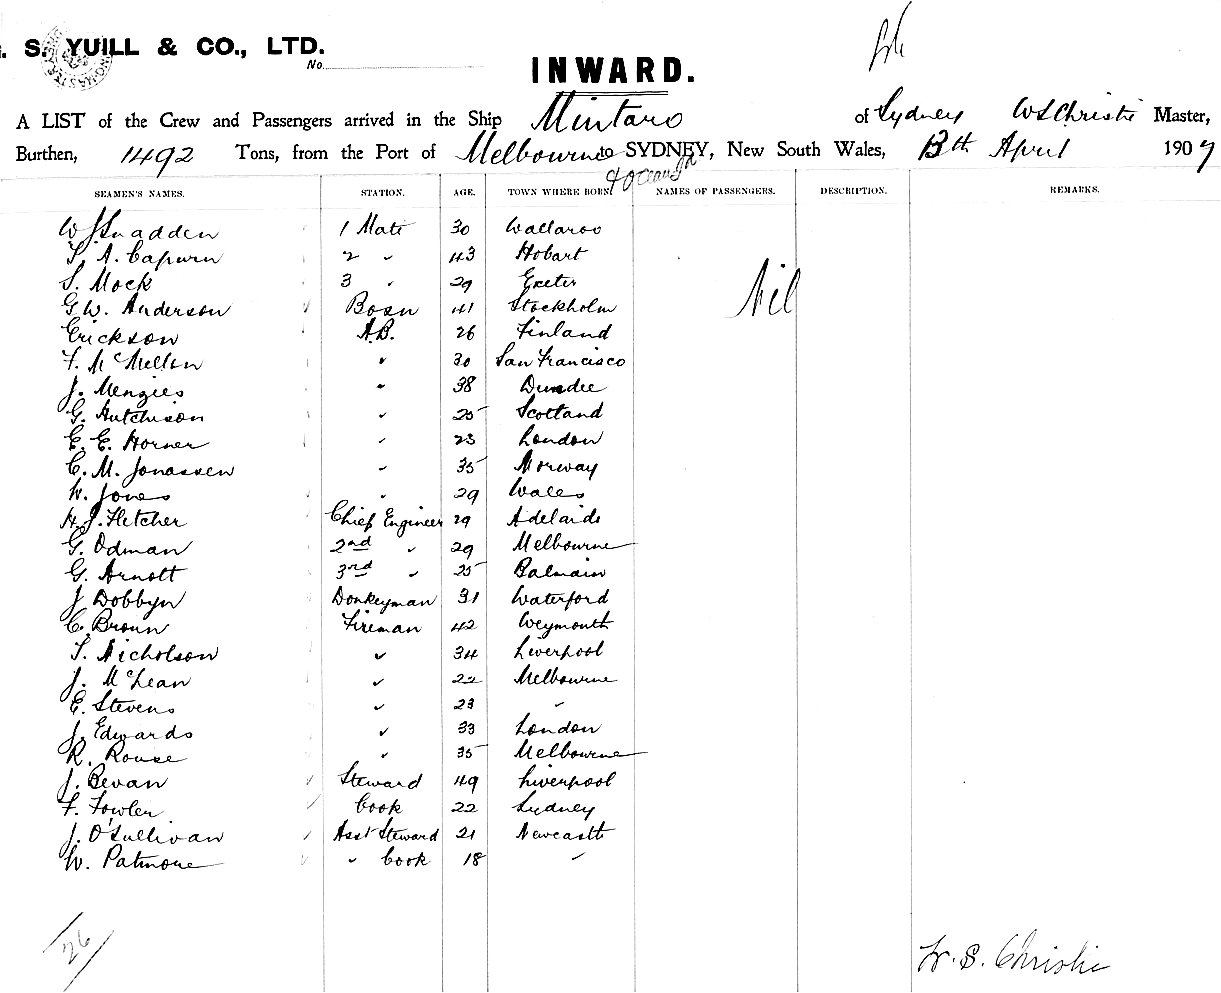 . S. YUILL & CO., LTD.
No.
INWARD.
A LIST of the Crew and Passengers arrived in the Ship Mintaro of Sydney W S Christie Master,
Burthen, 1492 Tons, from the Port of Melbourne to SYDNEY, New South Wales, 13th April 1907
SEAMEN'S NAMES. STATION. AGE. TOWN WHERE BORN NAMES OF PASSENGERS. DESCRIPTION. REMARKS.
W J Snadden 1 Mate 30 Wallaroo
T. A. Capurn 2 " 43 Hobart
S. Mock 3 " 29 Exeter
Nil
G. W. Anderson Bosn 41 Stockholm
Erickson A.B. 26 Finland
F. McMellon " 30 San Francisco
J. Menzies " 38 Dundee
G. Hutchison " 25 Scotland
E. E. Horner " 23 London
C. M. Jonassen " 35 Norway
W. Jones " 29 Wales
H. J. Fletcher Chief Engineer 29 Adelaide
G. Odman 2nd " 29 Melbourne
G. Arnott 3rd " 25 Balmain
J Dobbyn Donkeyman 31 Waterford
C. Broun Fireman 42 Weymouth
T. Nicholson " 34 Liverpool
J. McLean " 22 Melbourne
E. Stevens " 23 "
J. Edwards " 33 London
R. Rouse " 35 Melbourne
J. Bevan Steward 49 Liverpool
F. Fowler Cook 22 Sydney
J. O'Sullivan Asst Steward 21 Newcastle
W. Patmore " Cook 18 "
26
W. S. Christie